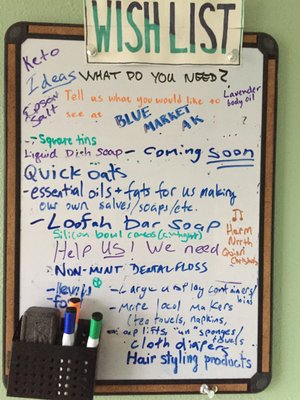 WISH LIST
Keto
Ideas
WHAT DO YOU NEED?
Lavender
body oil
Epsom
Salt
Tell us what you would like to
see at
BLUE
MARKET
AK
- Square tins
Liquid Dish Soap - coming soon
Quick oats
- essential oils + fats for us making
our own salves/soaps/etc.
- Loofah bar soap
Silicon bowl covers
Help US! We need
Harm
North
NON-MINT DENTAL FLOSS
- Large display containers/
bins
- More local makers
(tea towels, napkins,
"un" sponges/
towels
cloth diapers
Hair styling products